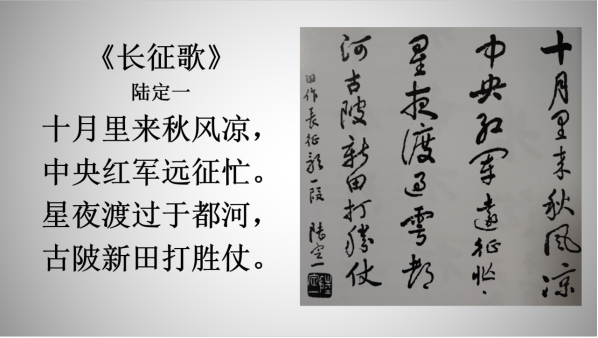 《长征歌》
陆定一
十月里来秋风凉，
中央红军远征忙。
星夜渡过于都河，
古陂新田打胜仗。
十月里来秋风凉
中央红军遠征忙
星夜渡过雩都
河古陂新田打勝仗
旧作長征歌一段 陸定一